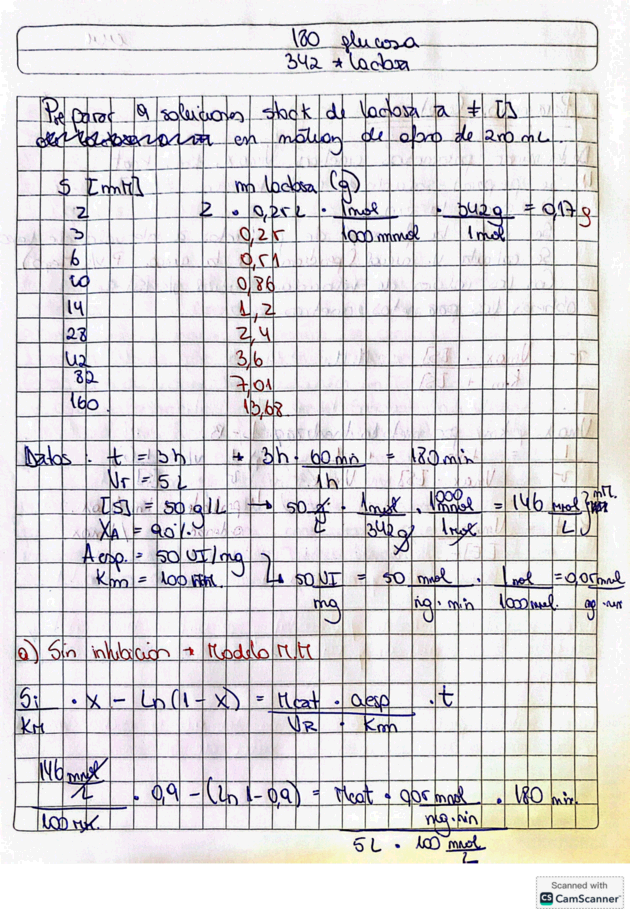 180 glucosa
342 * lactosa
Preparar 9 soluciones stock de lactosa a ≠ []
en matraz de aforo de 250 mL.
S [mM] m lactosa (g)
2 2 · 0,25 L · 1mol/1000 mmol · 342g/1mol = 0,17 g
3 0,25
6 0,51
10 0,86
14 1,2
28 2,4
42 3,6
82 7,01
160 13,68
Datos: t = 3h → 3h · 60min/1h = 180 min
Vr = 5 L
[S] = 50 g/L → 50 g/L · 1mol/342g · 1000mmol/1mol = 146 mmol/L } mM.
XA = 90%
Aesp. = 50 UI/mg
Km = 100 mM. ↳ 50 UI/mg = 50 mmol/mg·min · 1mol/1000mmol. = 0,05 mmol/mg·min
a) Sin inhibición → Modelo M.M
Si/KM · X − Ln(1−X) = Mcat · aesp/VR · Km · t
146 mmol/L/100 mM. · 0,9 − (Ln 1−0,9) = Mcat · 0,05 mmol/mg·min/5L · 100 mmol/L · 180 min.
Scanned with
CS CamScanner